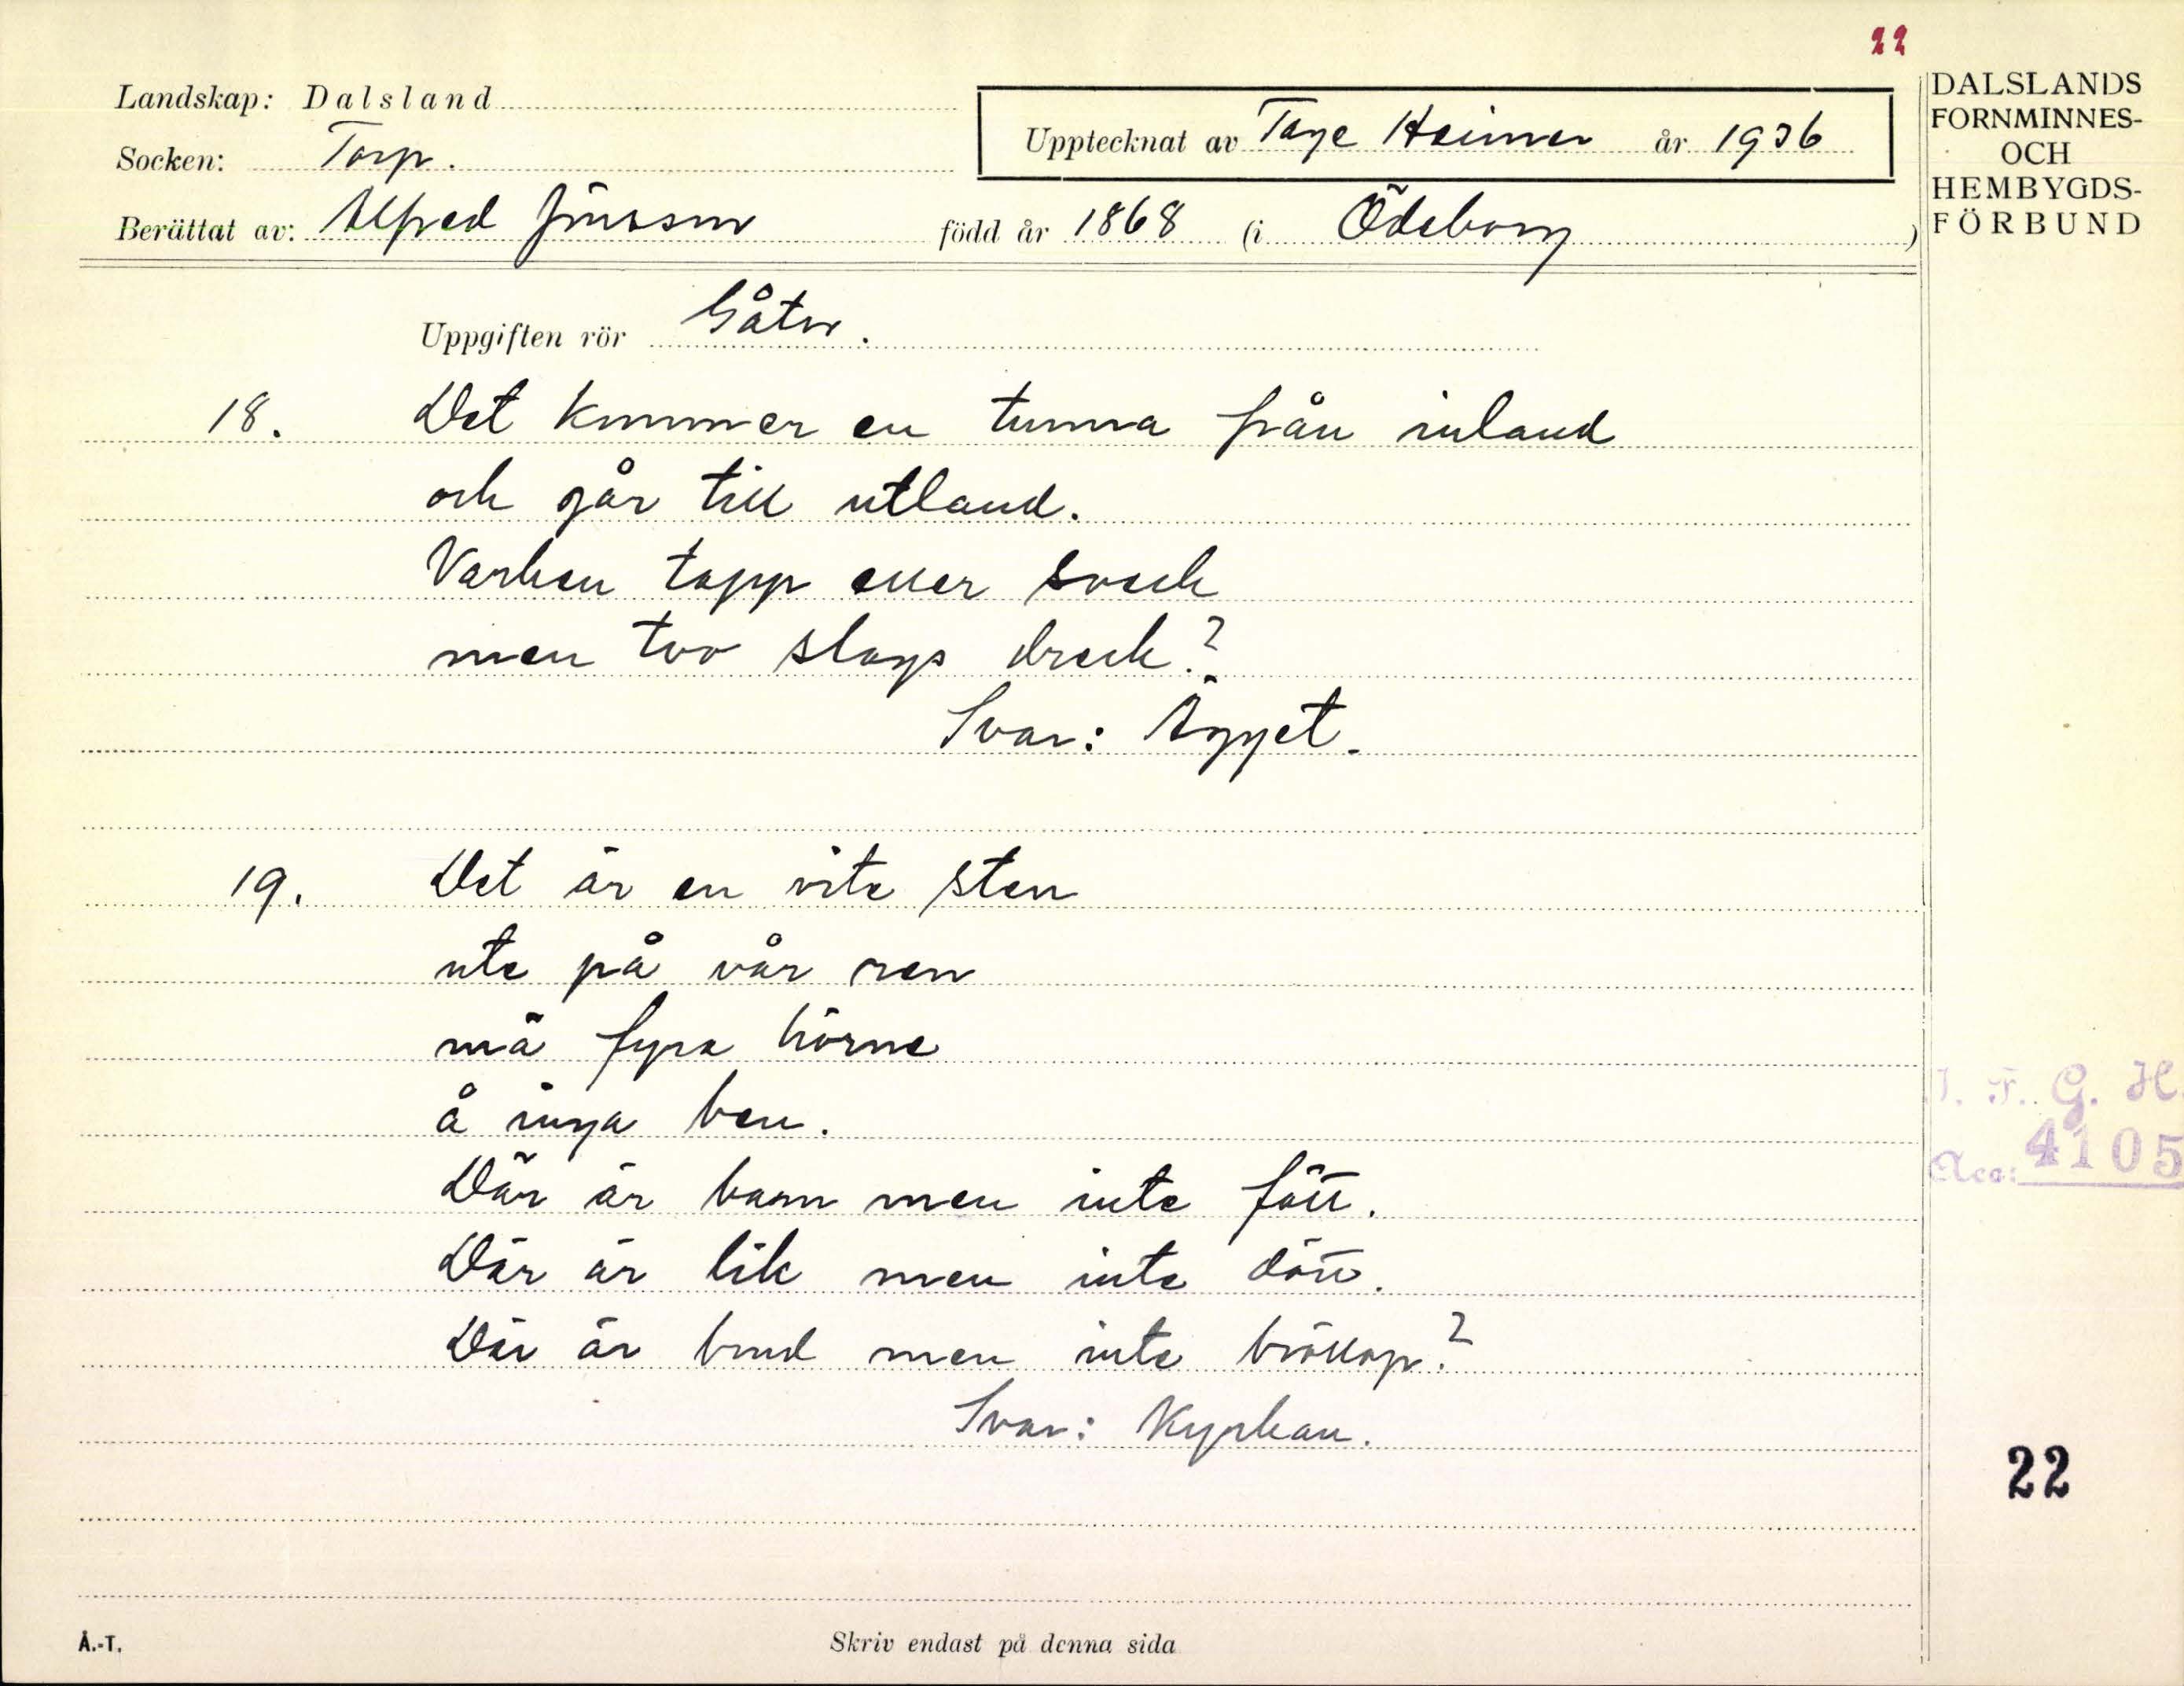 22
Landskap: Dalsland
Upptecknat av Tage Heimer år 1936
Socken: Torp.
Berättat av: Alfred Jönsson född år 1868 (i Ödeborg)
DALSLANDS
FORNMINNES-
OCH
HEMBYGDS-
FÖRBUND
Uppgiften rör Gåtor.
18. Det kommer en tunna från inland
och går till utland.
Varken tapp eller sveck
men två slags dreck?
Svar: Ägget.
19. Det är en vite sten
ute på vår ren
mä fyra hörne
å inga ben.
Där är barn men inte fött.
Där är lik men inte dött.
Där är brud men inte bröllop?
Svar: Kyrkan.
I. F. G. H.
Acc: 4105
22
Å.-T.
Skriv endast på denna sida